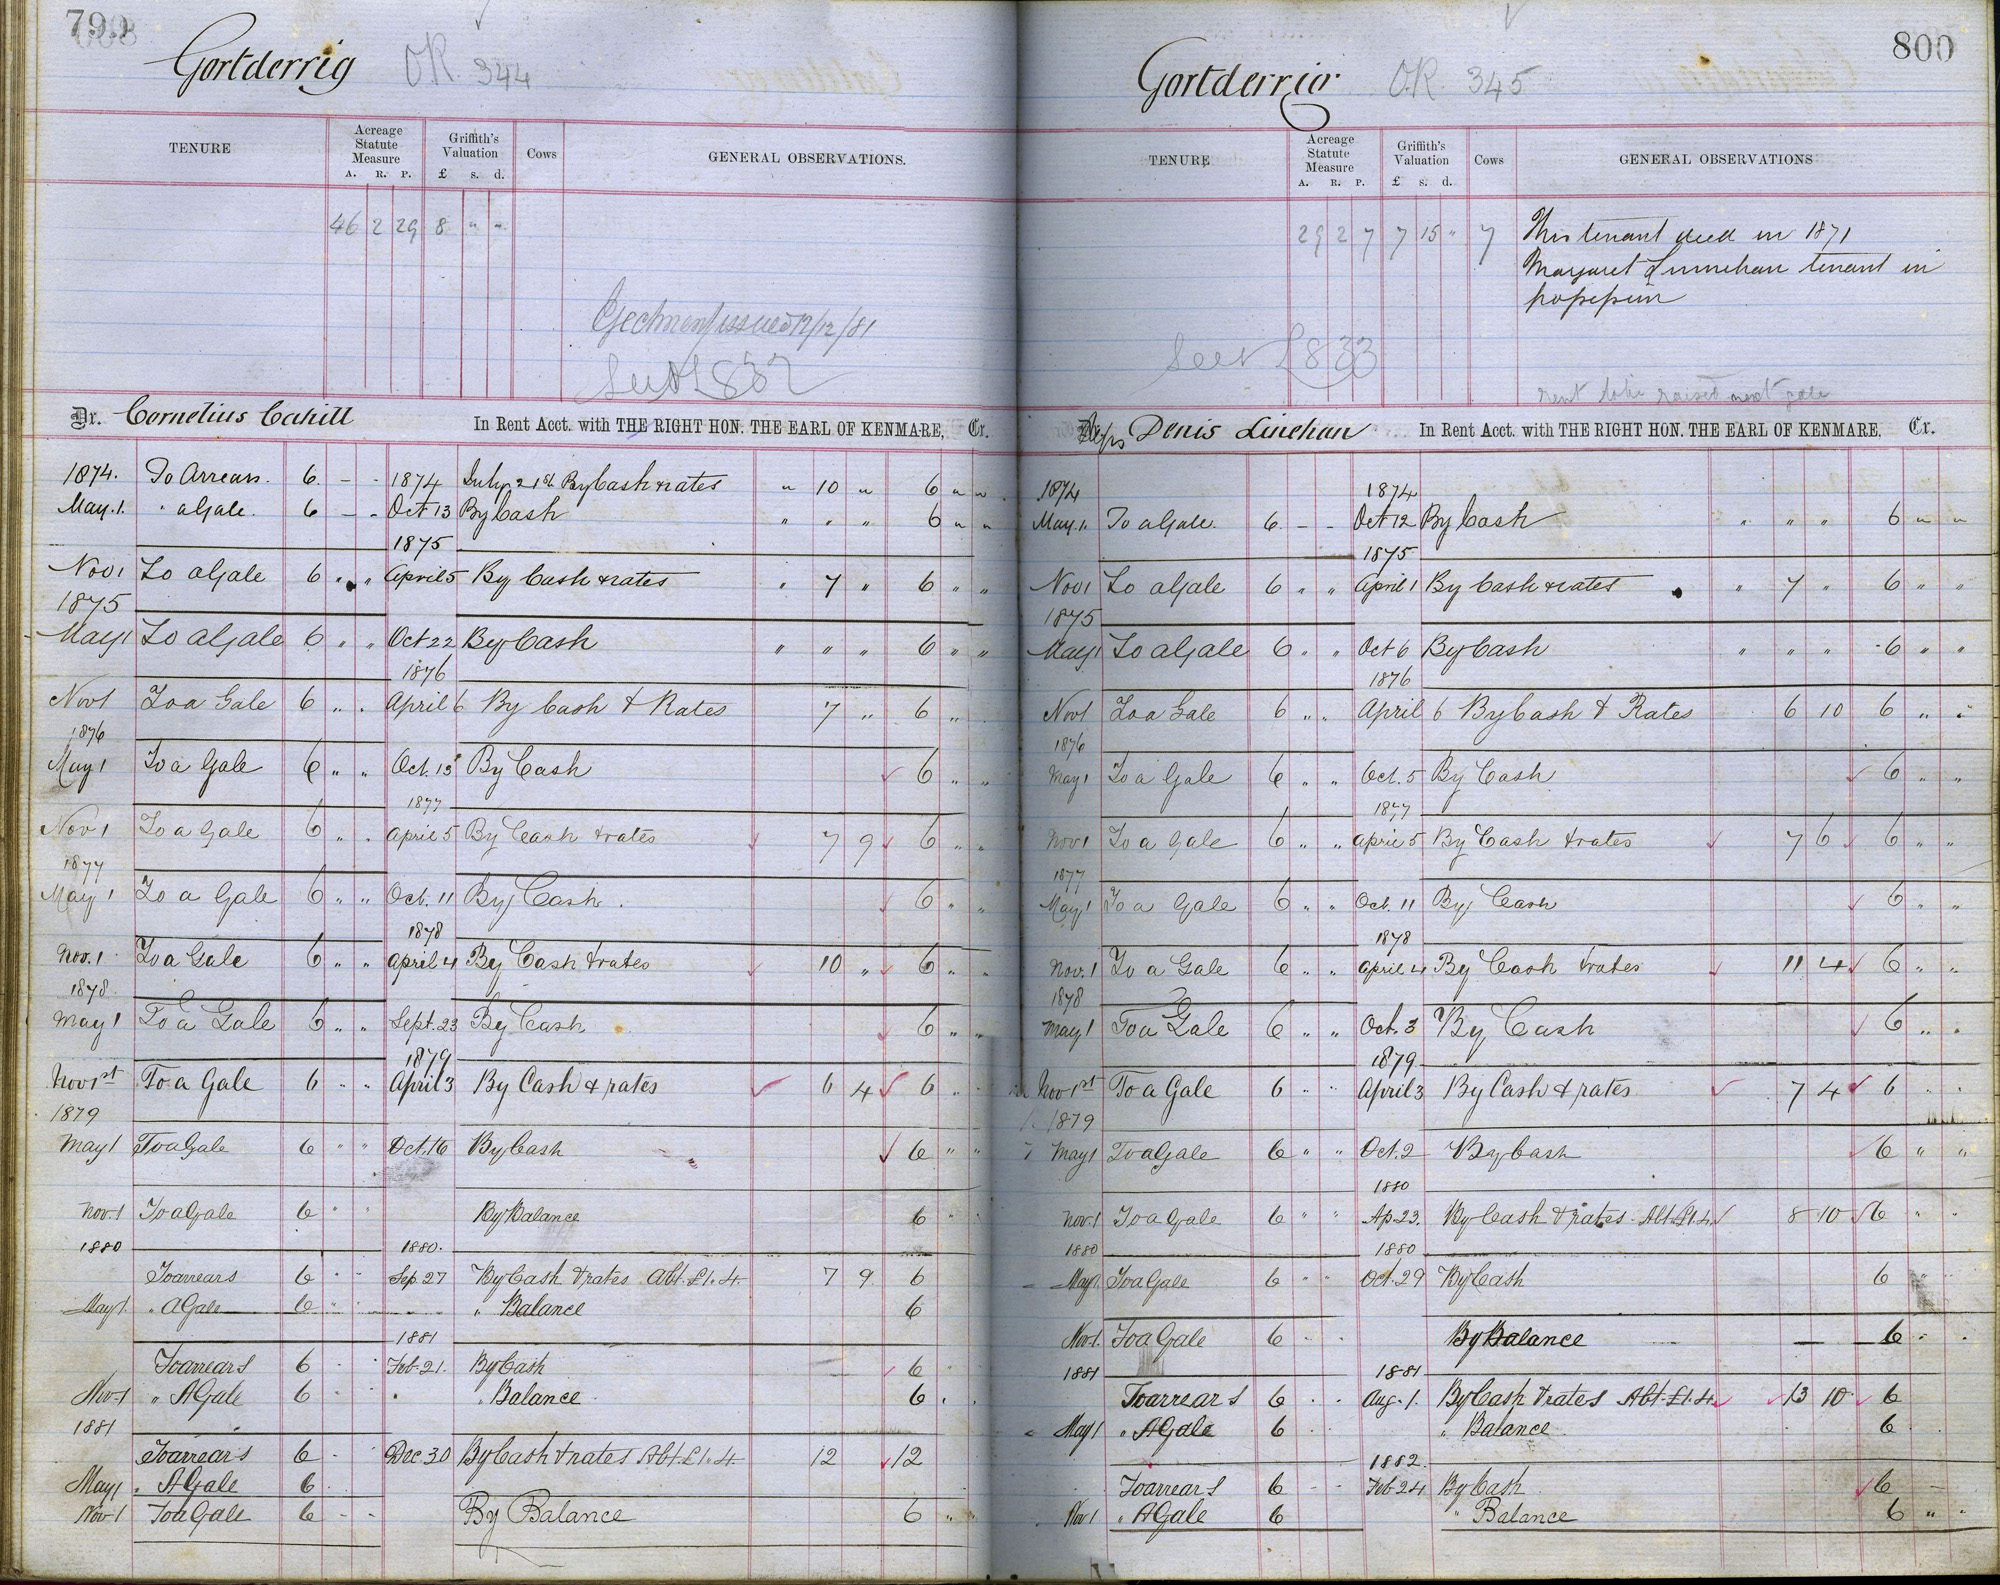 799
Gortderrig OR 344
TENURE
Acreage Statute Measure
A. R. P.
Griffith's Valuation
£ s. d.
Cows
GENERAL OBSERVATIONS.
46 2 29 8 " "
Ejectment issued 12/12/81
Dr. Cornelius Cahill In Rent Acct. with THE RIGHT HON. THE EARL OF KENMARE, Cr.
1874. To Arrears. 6 - - 1874 July 21st By Cash & rates " 10 " 6 " "
May. 1. " a Gale. 6 - - Oct 13 By Cash " " " 6 " "
1875
Nov 1 To a Gale 6 " " April 5 By Cash & rates " 7 " 6 " "
1875
May 1 To a Gale 6 " " Oct 22 By Cash " " " 6 " "
1876
Nov 1 To a Gale 6 " " April 6 By Cash & Rates 7 " 6 "
1876
May 1 To a Gale 6 " " Oct. 13 By Cash 6 " "
1877
Nov 1 To a Gale 6 " " April 5 By Cash & rates 7 9 6 " "
1877
May 1 To a Gale 6 " " Oct. 11 By Cash. 6 " "
1878
Nov. 1 To a Gale 6 " " April 4 By Cash & rates 10 " 6 " "
1878
May 1 To a Gale 6 " " Sept. 23 By Cash 6 " "
1879
Nov 1st To a Gale 6 " " April 3 By Cash & rates 6 4 6 " "
1879
May 1 To a Gale 6 " " Oct. 16 By Cash 6 " "
Nov. 1 To a Gale 6 " " By Balance 6 " "
1880 1880.
To arrears 6 " " Sep 27 By Cash & rates Abt. £1.4 7 9 6
May 1 " A Gale 6 " " " Balance 6
1881
To arrears 6 " Feb. 21. By Cash 6
Nov. 1 " A Gale 6 " " Balance 6
1881
To arrears 6 - Dec 30 By Cash & rates Abt. £1.4 12 12
May 1 " A Gale 6
Nov. 1 To a Gale 6 - - By Balance 6 " "
800
Gortderrig O.R. 345
TENURE
Acreage Statute Measure
A. R. P.
Griffith's Valuation
£ s. d.
Cows
GENERAL OBSERVATIONS
29 2 7 7 15 " 7
This tenant died in 1871
Margaret Linnehan tenant in
possession
See L 833
rent to be raised next gale
Dr. Reps Denis Linehan In Rent Acct. with THE RIGHT HON. THE EARL OF KENMARE, Cr.
1874 1874
May. 1. To a Gale. 6 - - Oct 12 By Cash " " " 6 " "
1875
Nov 1 To a Gale 6 " " April 1 By Cash & rates " 7 " 6 " "
1875
May 1 To a Gale 6 " " Oct 6 By Cash " " " 6 " "
1876
Nov 1 To a Gale 6 " " April 6 By Cash & Rates 6 10 6 " "
1876
May 1 To a Gale 6 " " Oct. 5 By Cash 6 " "
1877
Nov 1 To a Gale 6 " " April 5 By Cash & rates 7 6 6 " "
1877
May 1 To a Gale 6 " " Oct. 11 By Cash 6 " "
1878
Nov. 1 To a Gale 6 " " April 4 By Cash & rates 11 4 6 " "
1878
May 1 To a Gale 6 " " Oct. 3 By Cash 6 " "
1879
Nov 1st To a Gale 6 " " April 3 By Cash & rates 7 4 6 " "
1879
May 1 To a Gale 6 " " Oct. 2 By Cash 6 " "
1880
Nov. 1 To a Gale 6 " " Ap 23. By Cash & rates. Abt. £1.4 8 10 6 " "
1880 1880
May 1 To a Gale 6 " " Oct. 29 By Cash 6 "
Nov. 1. To a Gale 6 " " By Balance - 6 " "
1881 1881
To arrears 6 " " Aug. 1. By Cash & rates Abt. £1.4 13 10 6
May 1 " A Gale 6 " " Balance 6
1882.
To arrears 6 - - Feb 24 By Cash 6 -
Nov. 1 " A Gale 6 " Balance 6 " "